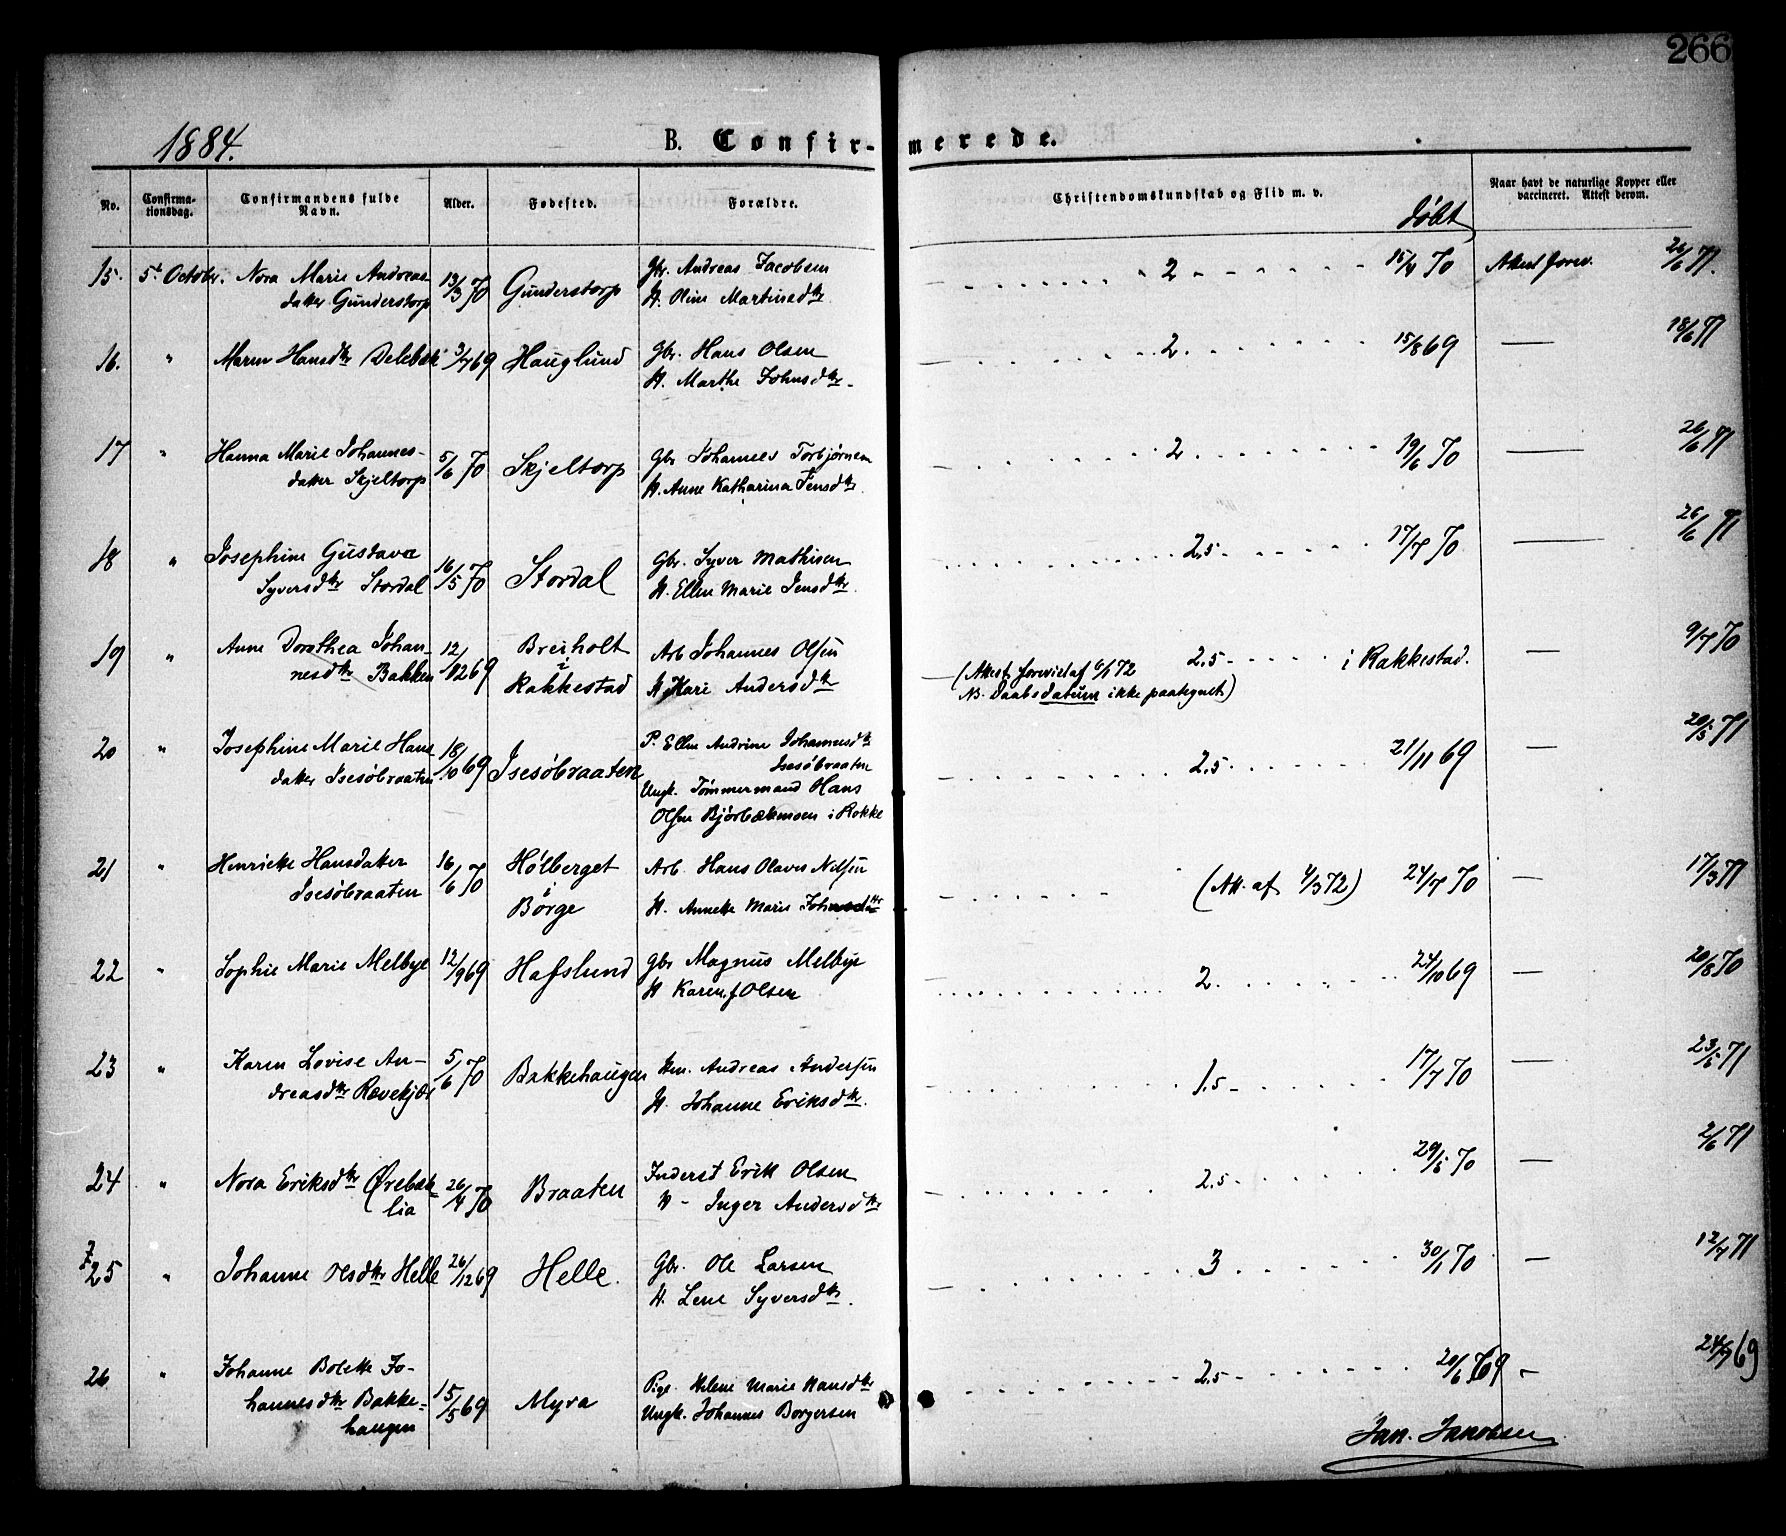 266
1884.
B. Confir-
merede.
No.
Confirma-
tionsdag.
Confirmandens fulde
Navn.
Alder.
Fødested.
Forældre.
Christendomskundskab og Flid m. v.
døbt
Naar havt de naturlige Kopper eller
vaccineret. Attest derom.
15. 5t Octobr. Nora Marie Andreas- 13/3 70 Gunderstorp Gbr. Andreas Jacobsen 2 15/4 70 Attest forev. 26/6 71.
datter Gunderstorp H. Oline Martinsdtr
16. " Maren Hansdtr Delebæk 3/7 69 Hauglund Gbr. Hans Olsen 2 15/8 69 — 18/6 71
H. Marthe Johnsdtr.
17 " Hanna Marie Johannes- 5/6 70 Skjeltorp Gbr Johannes Torbjørnsen 2 19/6 70 — 26/6 71
datter Skjeltorp H. Anne Katharina Jensdtr.
18 " Josephine Gustava 16/5 70 Stordal Gbr. Syver Mathisen 2,5 17/7 70 — 26/6 71
Syversdtr Stordal H. Ellen Marie Jensdtr.
19 " Anne Dorothea Johan- 12/12 69 Breiholt Arb Johannes Olsen 2,5 i Rakkestad. — 9/7 70
nesdtr Bakken i Rakkestad H Kari Andersdtr
(Attest forevist af 6/1 72
NB. Daabsdatum ikke paategnet)
20 " Josephine Marie Hans 18/10 69 Isesøbraaten P. Ellen Andrine Johannesdtr 2,5 21/11 69 — 20/5 71
datter Isesøbraaten Isesøbraaten
Ungk. Tømmermand Hans
Olsen Bjørbækmosen i Rokke
21 " Henriette Hansdatter 16/6 70 Hølberget Arb. Hans Olaves Nilsen (Att. af 4/3 72) 24/7 70 — 17/3 71
Isesøbraaten i Borge H. Annette Marie Johnsdtr
22 " Sophie Marie Melbye 12/9 69 Hafslund Gbr Magnus Melbye 2. 24/10 69 — 20/8 70
H Karen f. Olsen
23 " Karen Lovise An- 5/6 70 Bakkehaugen Hm. Andreas Andersen 1,5 17/7 70 — 23/5 71
dreasdtr Rævekjær H. Johanne Eriksdtr.
24 " Nora Eriksdtr Ørebæk- 26/4 70 Braaten Inderst Erik Olsen 2,5 29/5 70 — 2/6 71
lia H — Inger Andersdtr
25 " Johanne Olsdtr Helle 26/12 69 Helle. Gbr. Ole Larsen 3 30/1 70 — 12/7 71
H. Lene Syversdtr.
26 " Johanne Bolette Jo- 15/5 69 Myra Pige. Helene Marie Hansdtr 2,5 20/6 69 — 24/9 69
hannesdtr Bakke- Ungk. Johannes Borgersen
haugen